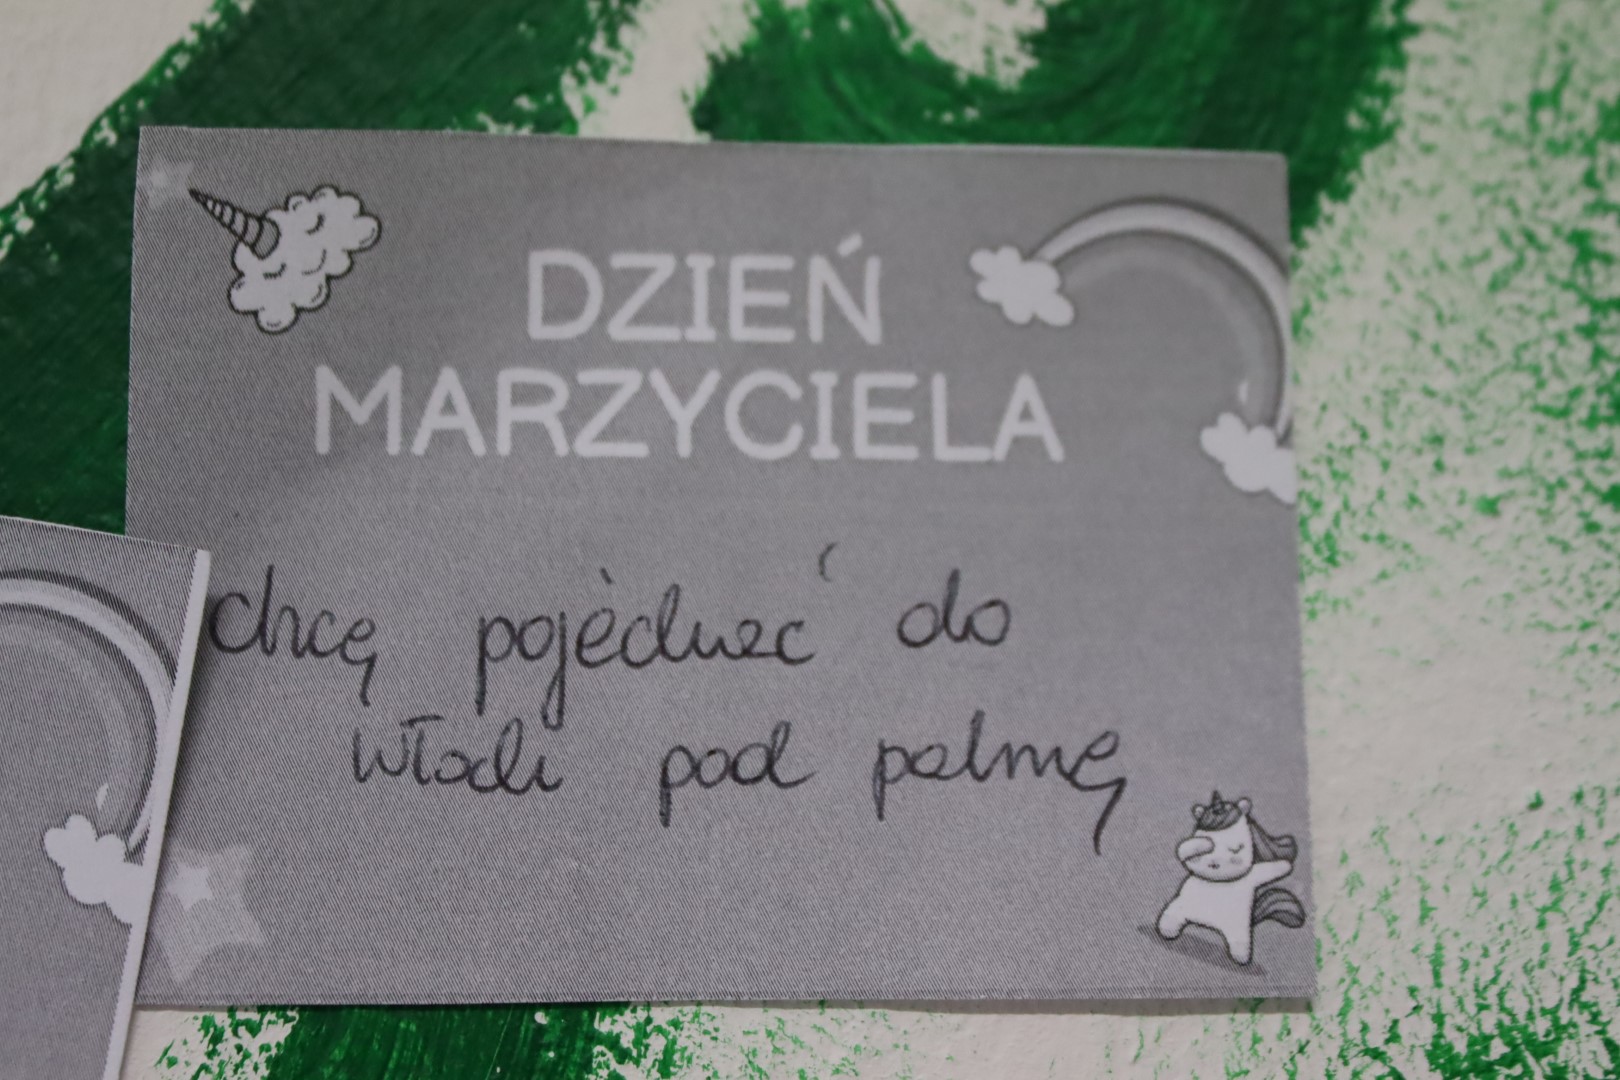 DZIEŃ
MARZYCIELA
chcę pojechać do
włoch pod palmę